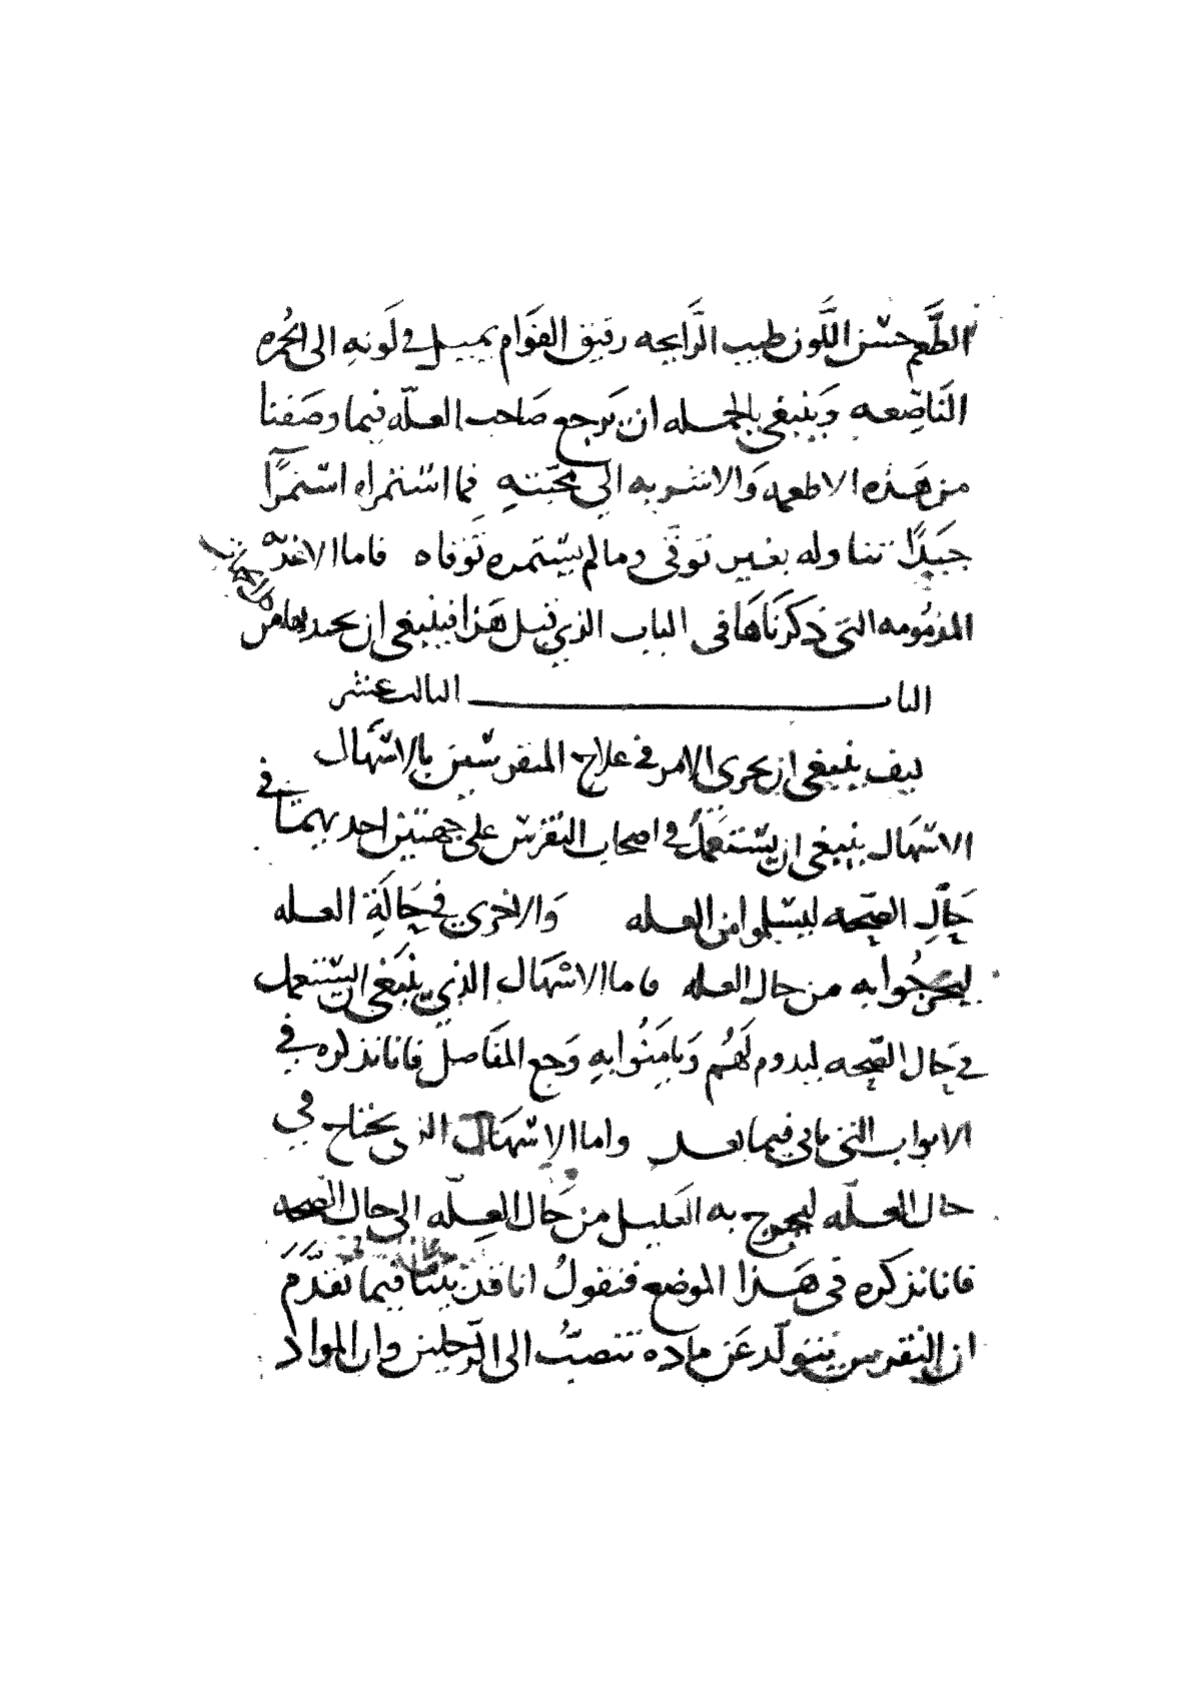 الطَّعم حسن اللَّون طيب الرَّايحه رقيق القوَام يميل في لَونهِ الى الحُمره
النَاصِعه وَينبغي بالجمله ان يَرجع صَاحب العلّه فيما وصَفنا
من هَذه الاطعمه وَالاشربه الى محبّتهِ فما استمراه استمرًا
جَيدًا تناوله بغير توَقّى وما لم يستمره تَوقاه فاما الاغذيه
المذمُومه التى ذكرنَاهَا فى الباب الذي قبل هَذا فينبغي ان يحد بها من
الباب الثالث عشر
كيف ينبغي ان يجرى الامر في علاج المنقرسين بالاسهال
الاسهَال ينبغي ان يستعملُ في اصحاب النقرس على جهتين احديهما في
حَالِ الصّحه ليسلموا من العله وَالاخرى في حَالَةِ العله
ليخرجُوا به من حال العله فاما الاسْهَال الذي ينبَغي ان يستعمل
في حَال الصّحه ليدوم لَهُم وَيامَنُوا بهِ وَجع المفَاصل فانا نذكره في
الابواب التي ياتي فيما بعد واما الاسهَال الذى يحتاج في
حال العلّه ليخرج به العَليل من حَال العِلّه الى حال الصحه
فانا نذكره فى هَذا الموضع فنقولُ انا قد بينّا فيما تقدَّمَ
ان النقرس يتولّد عَن ماده تنصبُّ الى الرّجلين وان المواد